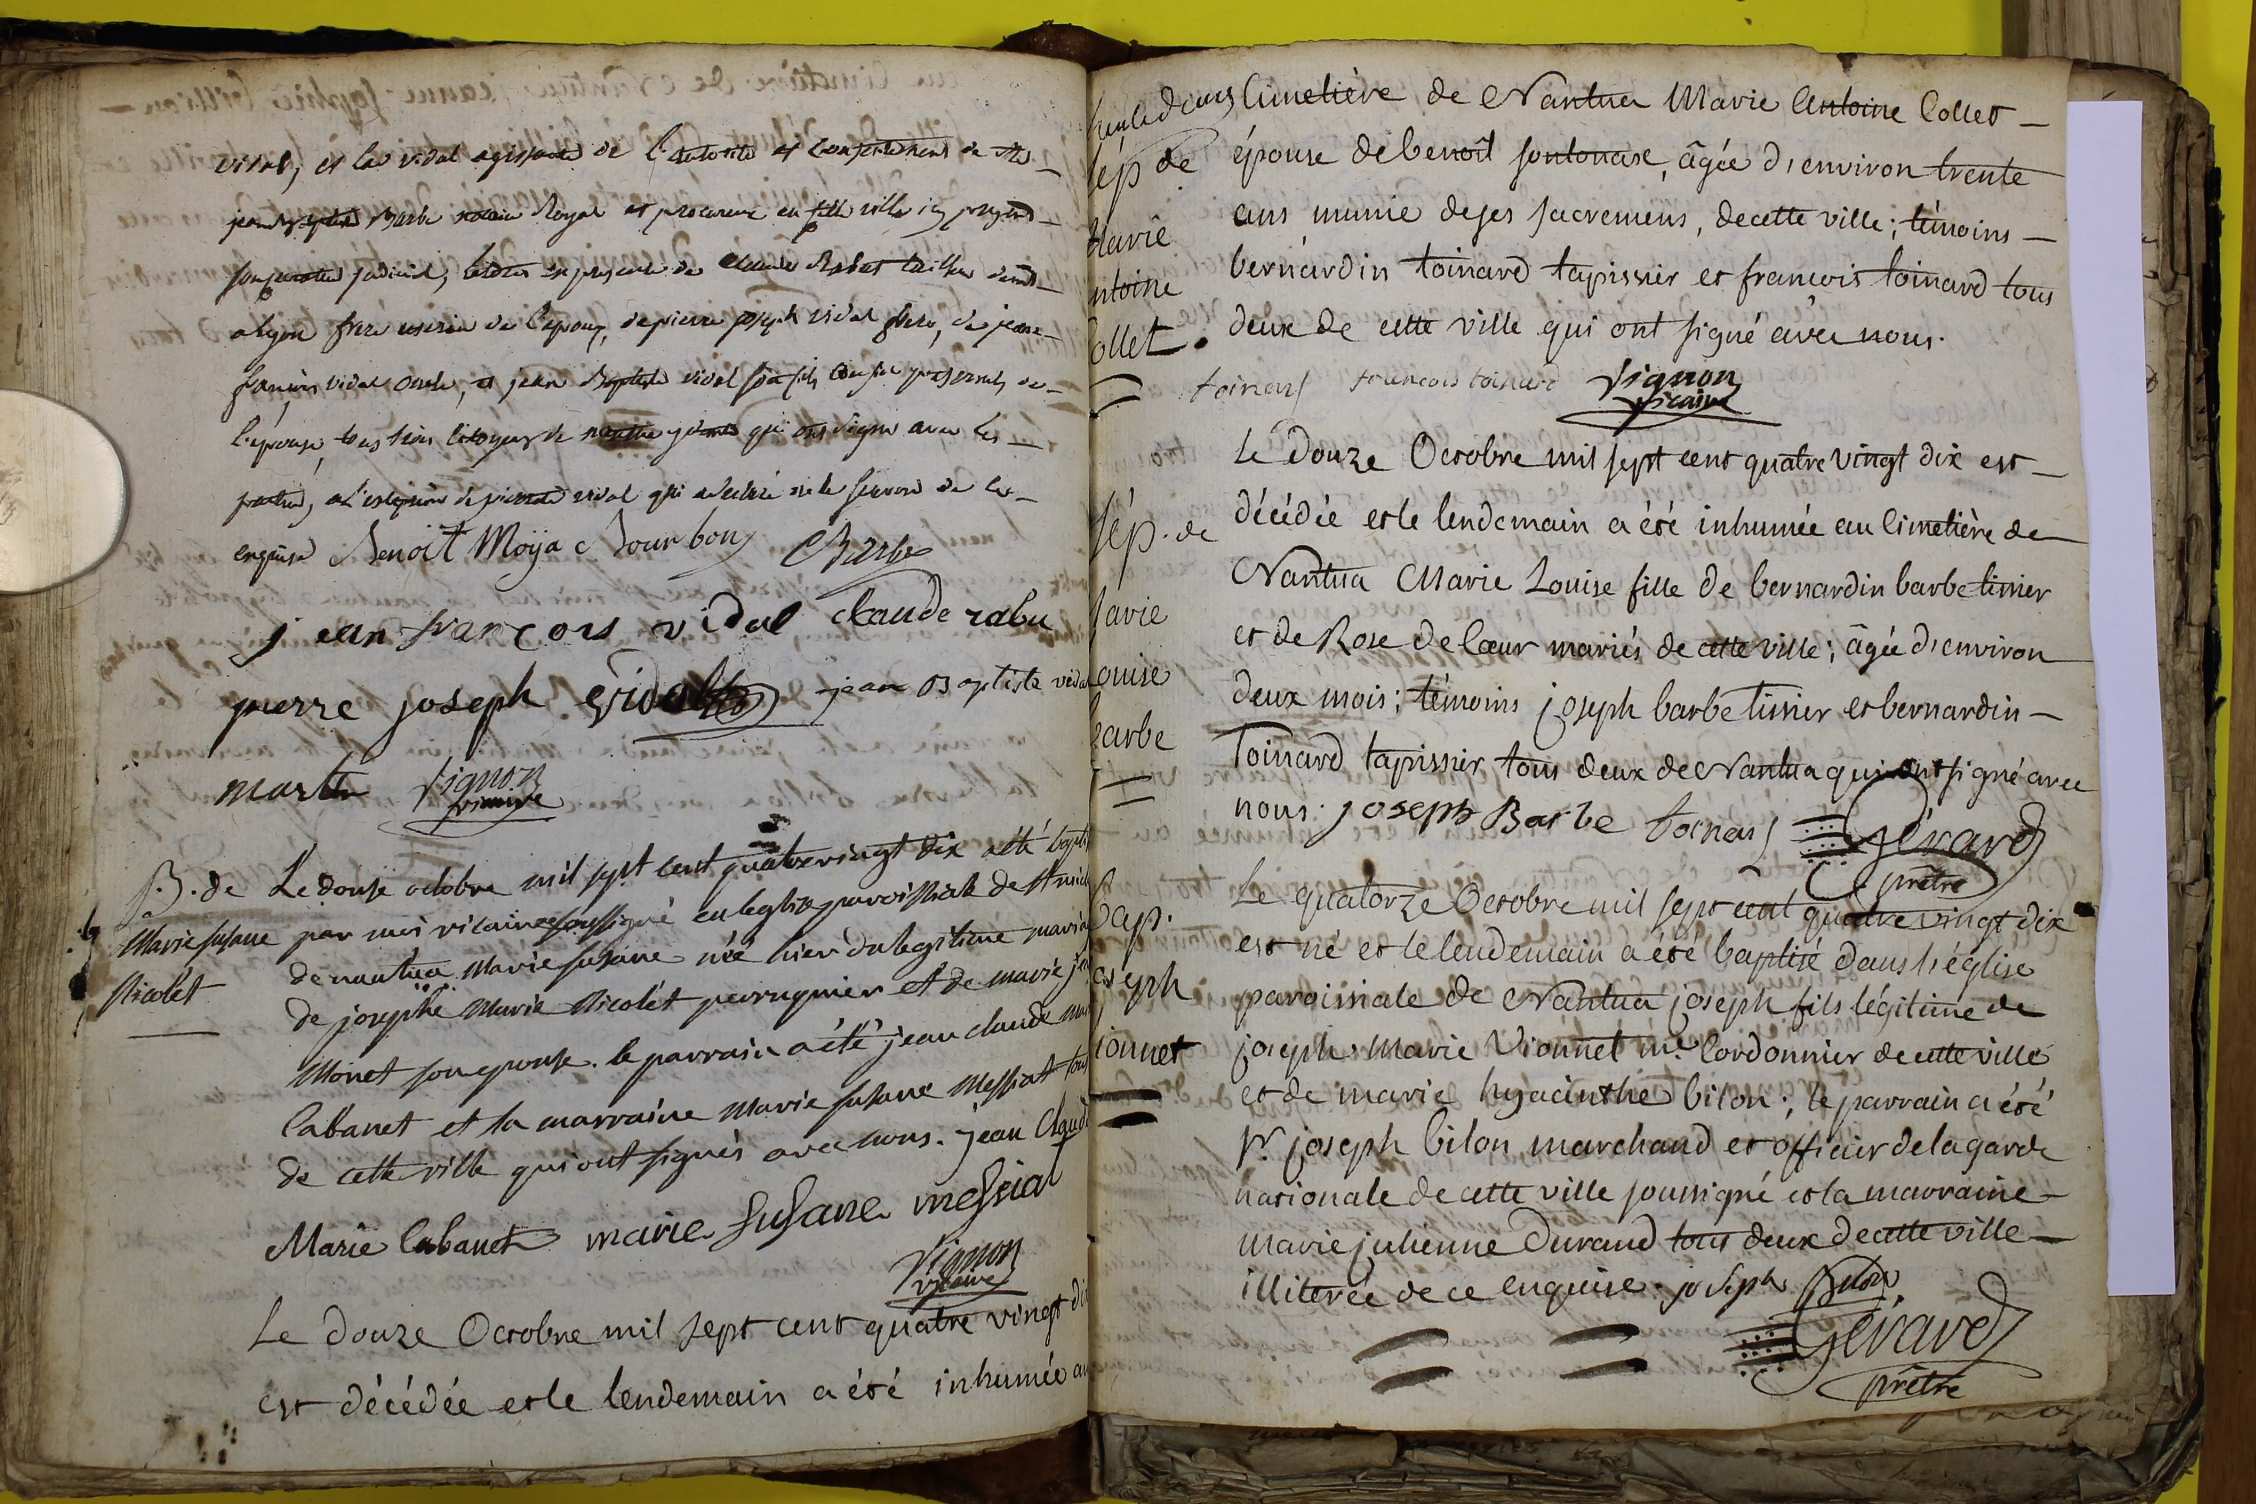 vidal, et la vidal agissante de l'autorité et consentement de me
jean baptiste Barbe notaire Royal et procureur en ville icy present
son judiciel, lesdits en presence de claude Rabut tailleur
a lyon frere uterin de l'epoux, de pierre joseph vidal frere, de jean
françois vidal oncle, et jean Baptiste vidal
l'epouse, tous trois citoyens de nantua qui ont signé avec les
parties, a l'exception de vidal qui a declaré ne le scavoir de ce
enquise Benoit Moÿac Bourbon Barbe
jean françois vidal claude rabu
pierre joseph vidal jean Baptiste vidal
martin Vignon
vicaire
B. de
Marie susane
Nicolét
Le douse octobre mil sept cent quatrevingt dix a été bapti
par moi vicaire soussigné en leglise paroissiale de st mich
de nantua Marie susane née hier du legitime maria
de josephe Marie Nicolét perruquier et de marie je
Monet son epouse. le parrain a été jean claude ma
Cabanet et la marraine Marie susane Messiat tou
de cette ville qui ont signés avec nous. jean Claude
Marie Cabanet marie susane messiat
Vignon
vicaire
Le douze Octobre mil sept cent quatre vingt di
est décédée et le lendemain a été inhumée au
sép de
Marie
ntoine
ollet
Cimetière de Nantua Marie Antoine Collet
épouse de benoît sontonax, âgée d'environ trente
ans munie de ses sacremens, de cette ville; témoins
bernardin toinard tapissier et françois toinard tous
deux de cette ville qui ont signé avec nous.
toinard francois toinard Vignon
vicaire
sép. de
Marie
ouise
barbe
Le douze Octobre mil sept cent quatre vingt dix est
décédée et le lendemain a été inhumée au Cimetière de
Nantua Marie Louise fille de bernardin barbe
et de Rose de Cœur mariés de cette ville; âgée d'environ
deux mois; témoins joseph barbe et bernardin
Toinard tapissier tous deux de Nantua qui ont signé avec
nous. joseph Barbe toinard Gérard
prêtre
bap.
oseph
ionnet
Le quatorze Octobre mil sept cent quatre vingt dix
est né et le lendemain a été baptisé dans l'église
paroissiale de Nantua joseph fils légitime de
joseph Marie Vionnet me. Cordonnier de cette ville
et de marie hyacinthe bilon; le parrain a été
sr. joseph bilon marchand et officier de la garde
nationale de cette ville soussigné et la marraine
marie julienne Durand tous deux de cette ville
illiterée de ce enquise. joseph Bilon.
Gérard
prêtre